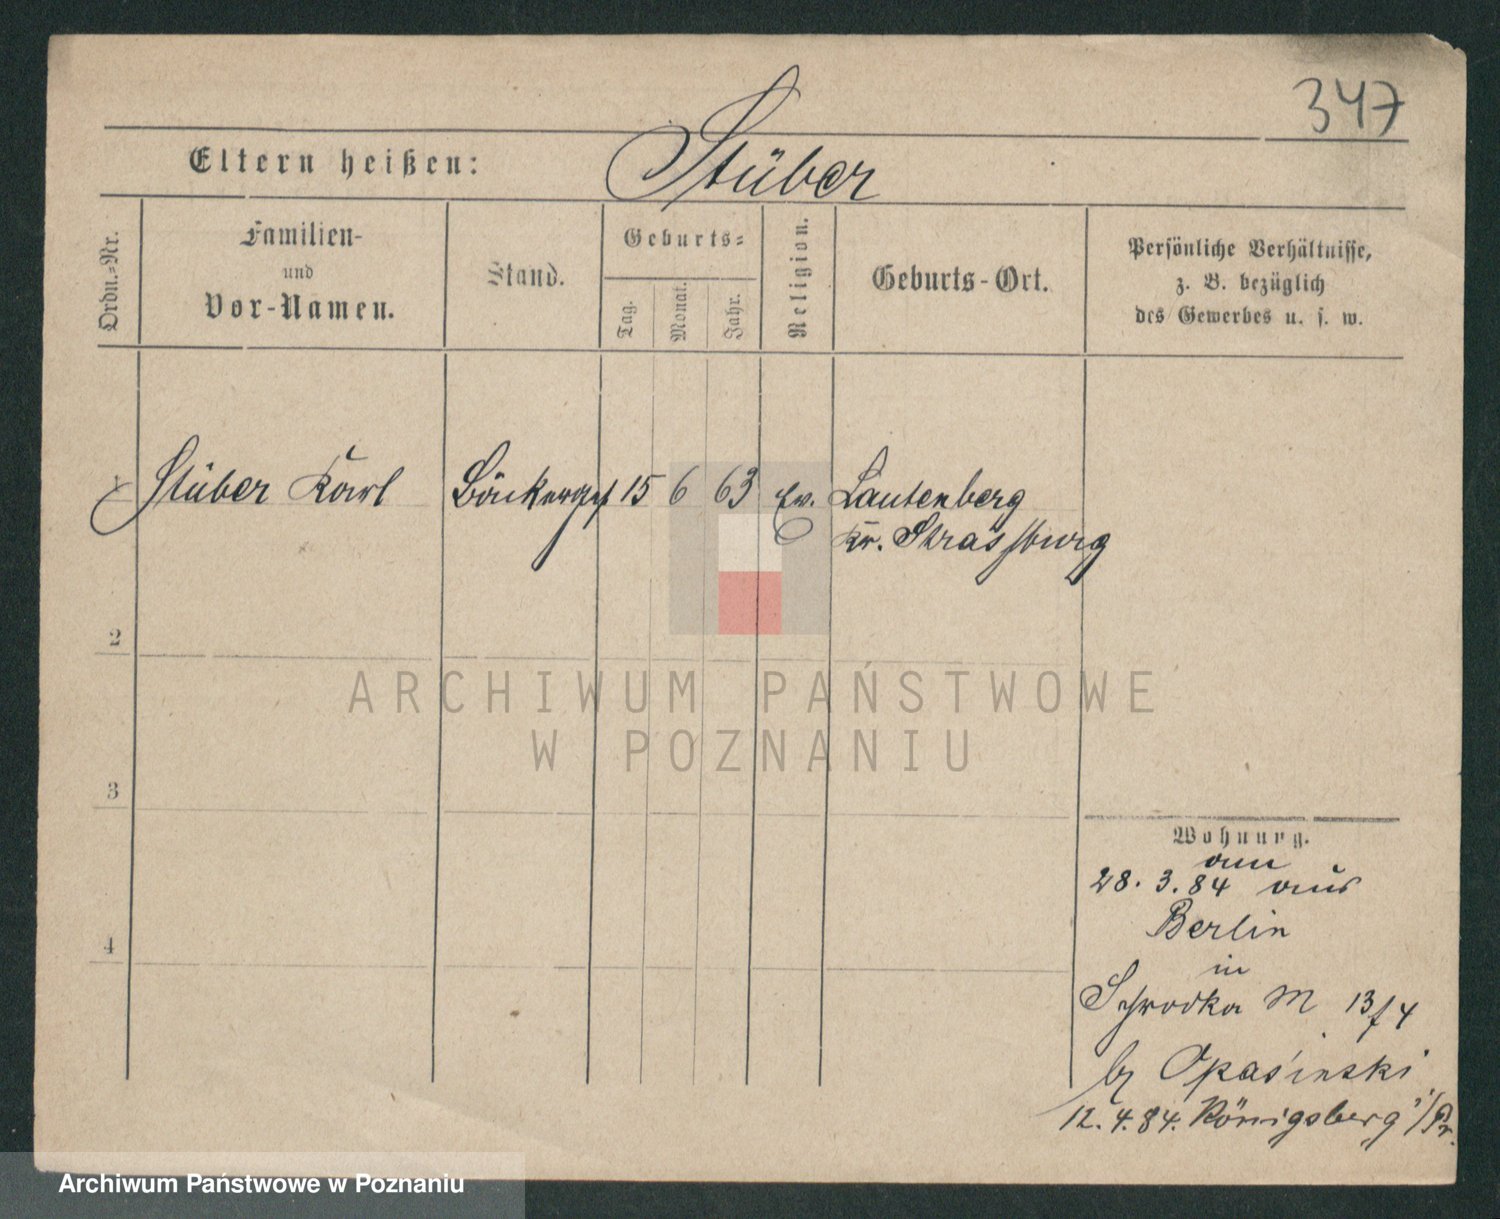 347
Eltern heißen: Stüber
Ordn.=Nr.
Familien-
und
Vor-Namen.
Stand.
Geburts=
Tag.
Monat.
Jahr.
Religion.
Geburts-Ort.
Persönliche Verhältnisse,
z. B. bezüglich
des Gewerbes u. s. w.
1 Stüber Karl Bäckerges 15 6 63 ev. Lautenberg
Kr. Strassburg
2
ARCHIWUM PAŃSTWOWE
W POZNANIU
3
Wohnung.
am
28. 3. 84 aus
Berlin
in
4
Schrodka M 13/4
bei Opasinski
12. 4. 84. Königsberg i/Pr.
Archiwum Państwowe w Poznaniu